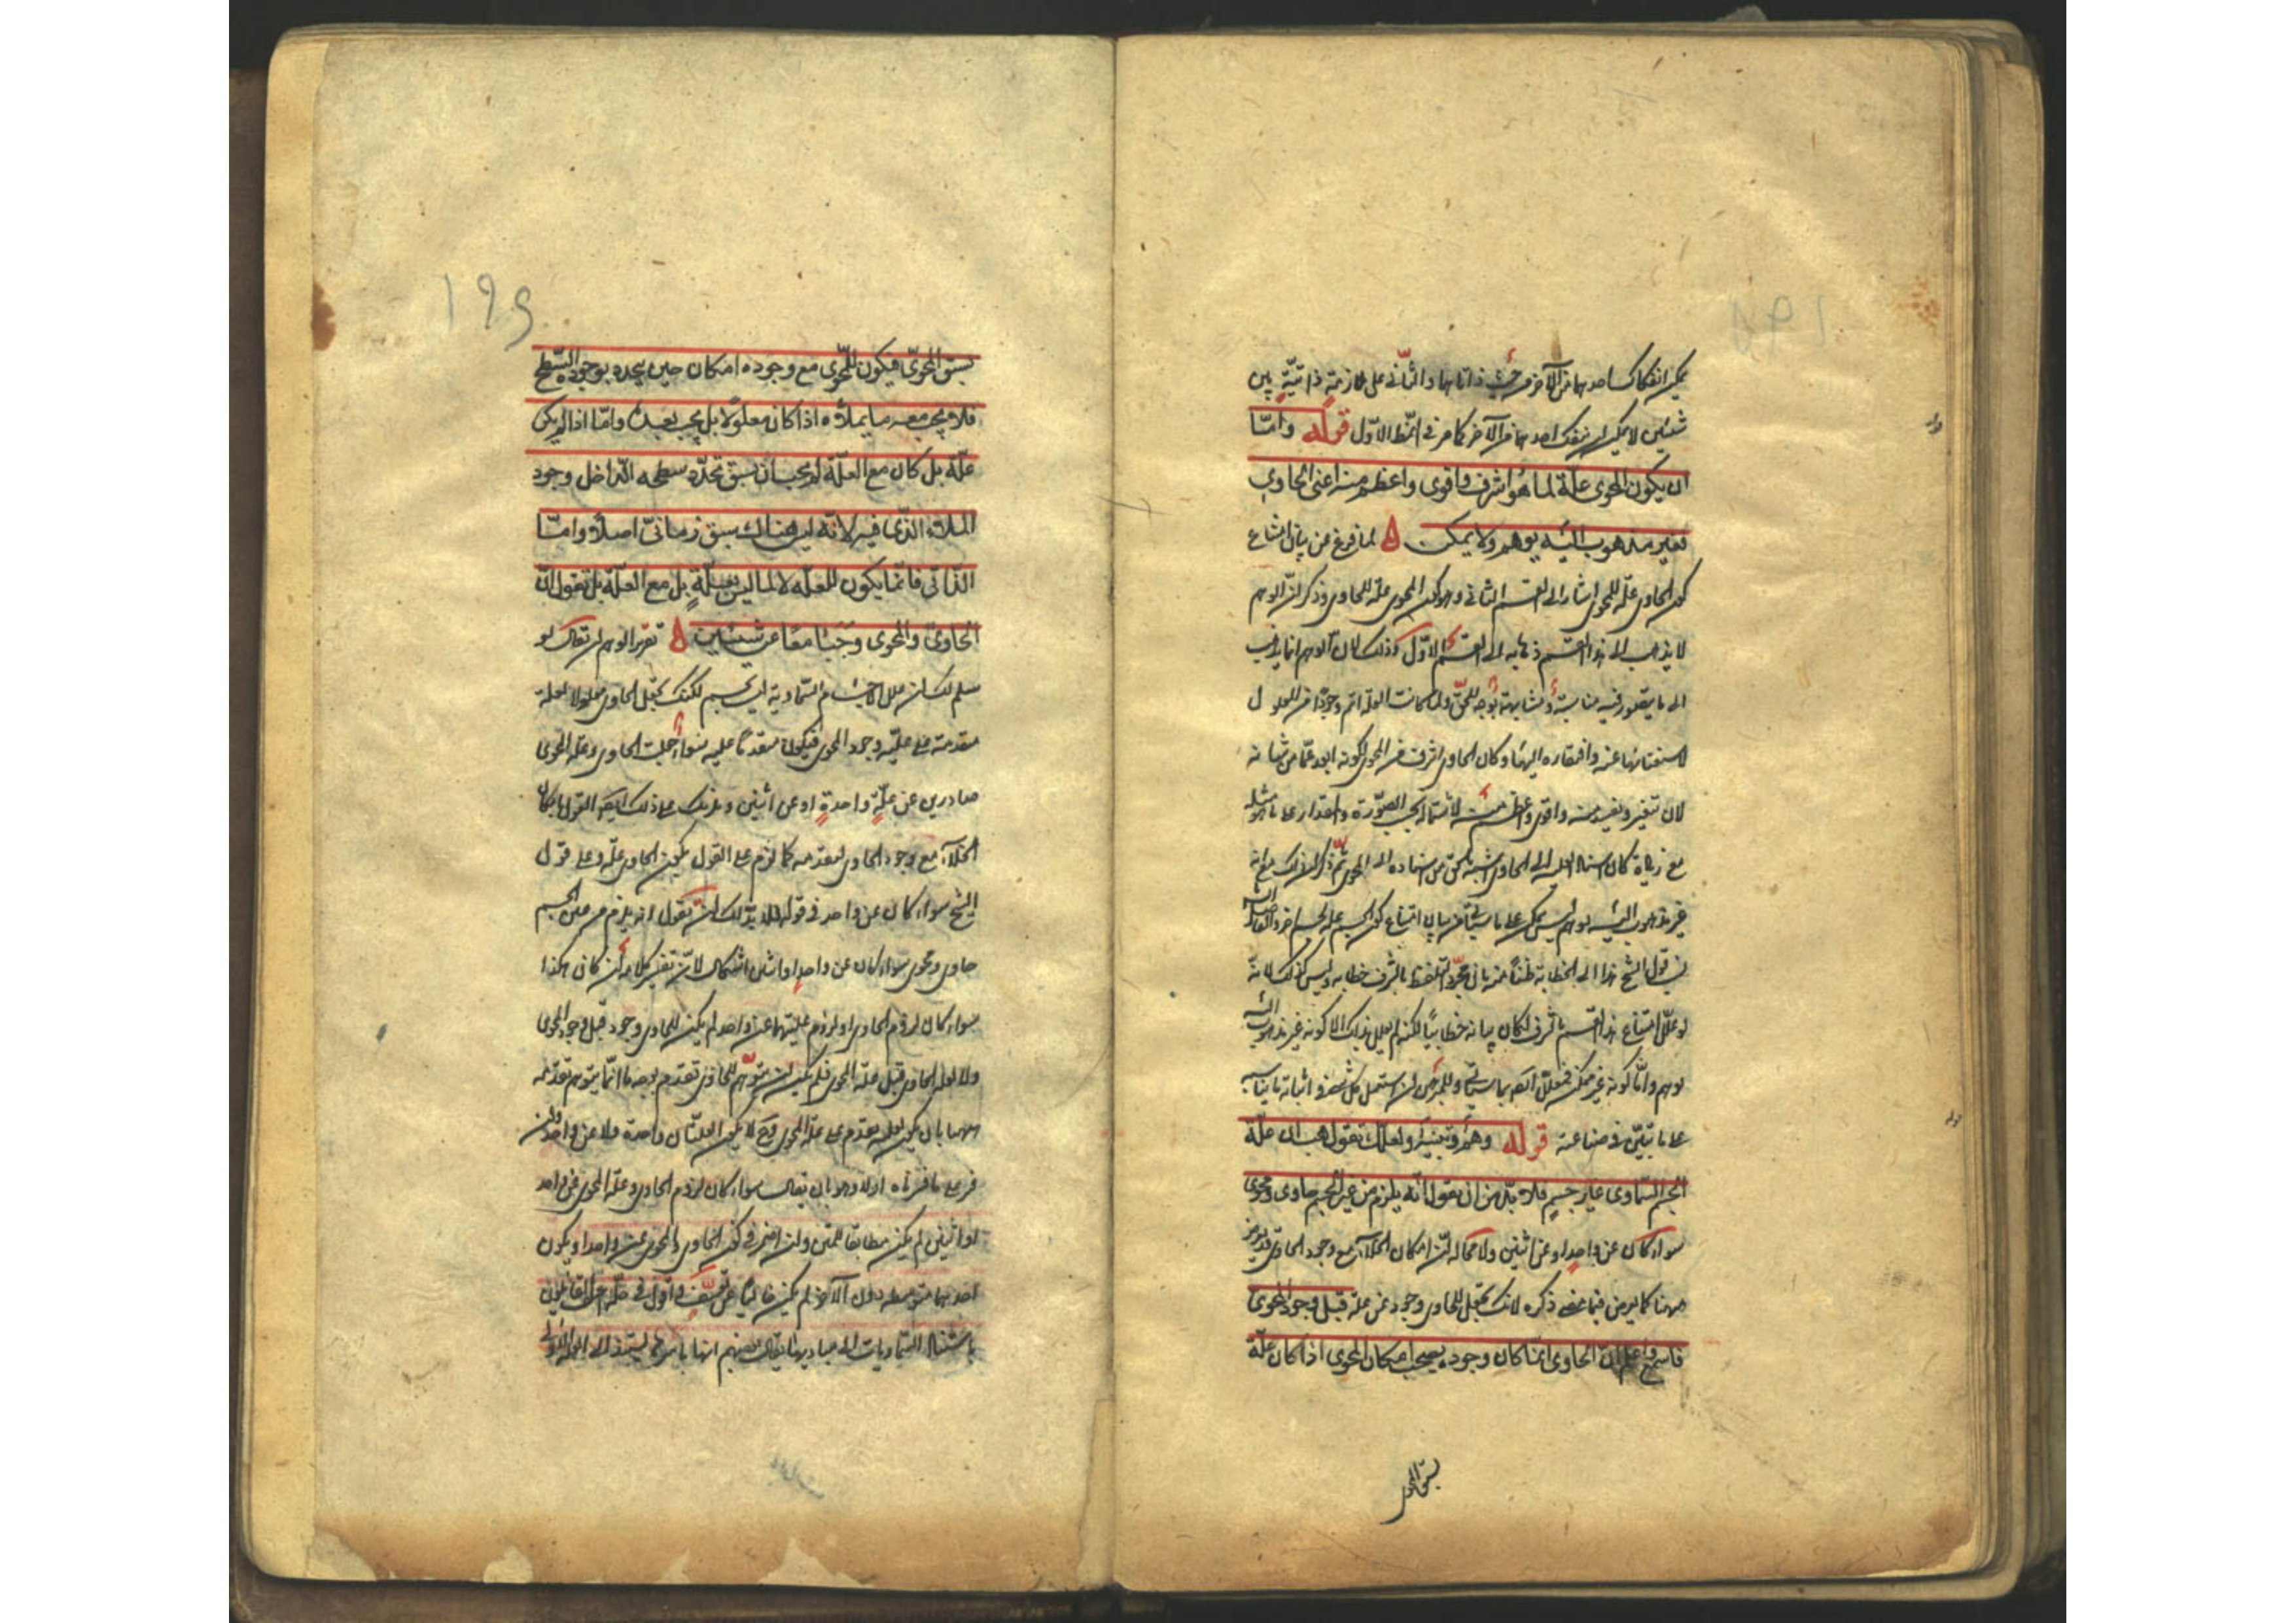 يمكن انفكاك احدهما من الآخر من حيث ذاتاهما والثاني على ملازمة ذاتية بين
شيئين لا يمكن ان ينفك احدهما من الآخر كما مر في النمط الاول قوله واما
ان يكون المحوى علة لما هو اشرف واقوى واعظم منه اعنى الحاوى
فغير مذهوب اليه بوهم ولا يمكن ه لما فرغ عن بيان امتناع
كون الحاوى علة للمحوى اشار الى القسم الثانى وهو كون المحوى علة للحاوى وذكر ان الوهم
لا يذهب الى هذا القسم ذهابه الى القسم الاول وذلك لان الوهم انما يذهب
الى ما يتصور فيه مناسبة ومشابهة بوجه للحق ولما كانت العلة اتم وجودا من المعلول
لاستغنائها عنه وافتقاره اليها وكان الحاوى اشرف من المحوى لكونه ابعد عما من شانه
لان تتغير ويفسد منه واقوى واعظم منه لاشتماله بحسب الصورة والمقدار على ما هو مثله
مع زيادة كان اسناد العلية الى الحاوى اشبه بالحق من اسناده الى المحوى ثم ذكر ان ذلك مع انه
غير مذهوب اليه بوهم ليس بممكن على ما سيأتى من بيان امتناع كون الجسم علة لجسم آخر والفاضل الشارح
نسب قول الشيخ هذا الى الخطابة ظنا منه بانى مجرد التلفظ بالشرف خطابة وليس كذلك لانه
لو علل امتناع هذا القسم بالشرف لكان بيانه خطابيا لكنه لم يعلل بذلك الا كونه غير مذهوب اليه
بوهم واما كونه غير ممكن فمعلل ايضا بما سيأتى وللمبرهن ان يستعمل كل شىء فى اثباته ما يناسبه
على ما تبين فى صناعته قوله وهم وتنبيه ولعلك تقول هب ان علة
الجسم السماوى غير جسم فلا بد من ان تقول انه يلزم من غير الجسم حاوى ومحوى
سواء كان عن واحد او عن اثنين ولا محالة ان امكان الخلاء مع وجود الحاوى قد يعرض
ههنا كما يعرض فيما مضى ذكره لانك تجعل للحاوى وجود عن علة قبل وجود المحوى
فاسمع واعلم ان الحاوى انما كان وجوده يصحب امكان المحوى اذا كان علة
يسبق المحوى
١٩٩
يسبق المحوى فيكون للمحوى مع وجوده امكان حين يتحدد بوجوده السطح
فلا يجب معه ما يملأه اذا كان معلولا بل يجب بعده واما اذا لم يكن
علة بل كان مع العلة لم يجب ان يسبق تحدد سطحه الداخل وجود
الملاء الذى فيه لانه ليس هناك سبق زمانى اصلا واما
الذاتى فانما يكون للعلة لا لما ليس بعلة بل مع العلة بل نقول ان
الحاوى والمحوى وجبا معا عن شيئين ه تقرير الوهم ان يقال لو
سلم لك ان علل الاجسام السماوية ليس بجسم لكنك تجعل الحاوى معلولا لعلة
متقدمة على علية وجود المحوى فيكون متقدما عليه سواء جعلت الحاوى وعلة المحوى
صادرين عن علة واحدة او عن اثنين ويلزمك على ذلك ايضا القول بامكان
الخلاء مع وجود الحاوى لتقدمه كما لزم على القول بكون الحاوى علة وعلى قول
الشيخ سواء كان عن واحد فى قوله فلا بد لك ان تقول انه يلزم من غير الجسم
حاوى ومحوى سواء كان عن واحد او اثنين اشكال لان تفسير كلامه ان كان هكذا
سواء كان لزوم الحاوى او لزوم عليتهما عن واحد لم يكن للحاوى وجود قبل وجود المحوى
ولا لعلة الحاوى قبل علة المحوى فلم يمكن ان يتوهم للحاوى تقدم بوجه ما انما يتوهم تقدمه
ههنا بان يكون لعلته تقدم على علة المحوى وح لا يكون العلتان واحدة ولا عن واحد وان
فسر على ما فسرناه اولا وهو بان يقال سواء كان لزوم الحاوى وعلة المحوى عن واحد
او اثنين لم يكن مطابقا للمتن وان اضمر فى كون الحاوى والمحوى عن واحد او يكون
احدهما متوسطه دون الآخر لم يكن خاليا عن تعسف واقول فى حله ان القائلين
باستناد السماويات الى مباديها يقال بعضهم انها باسرها يستند الى العلة الاولى